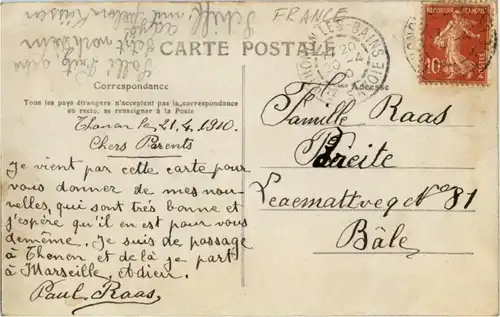 FRANCE
CARTE POSTALE
Correspondance
Adresse
Tous les pays étrangers n'acceptent pas la correspondance
au recto, se renseigner à la Poste
Thonon le, 21.4.1910.
Chers Parents
Je vient par cette carte pour
vous donner de mes nou-
velles, qui sont très bonne et
j'espère qu'il en est pour vous
demême. Je suis de passage
à Thonon et de là je part
à Marseille, Adieu.
Paul Raas,
Famille Raas
Breite
Leaemattveg No 81
Bâle
THONON-LES-BAINS
20
20 -4
SAVOIE
10